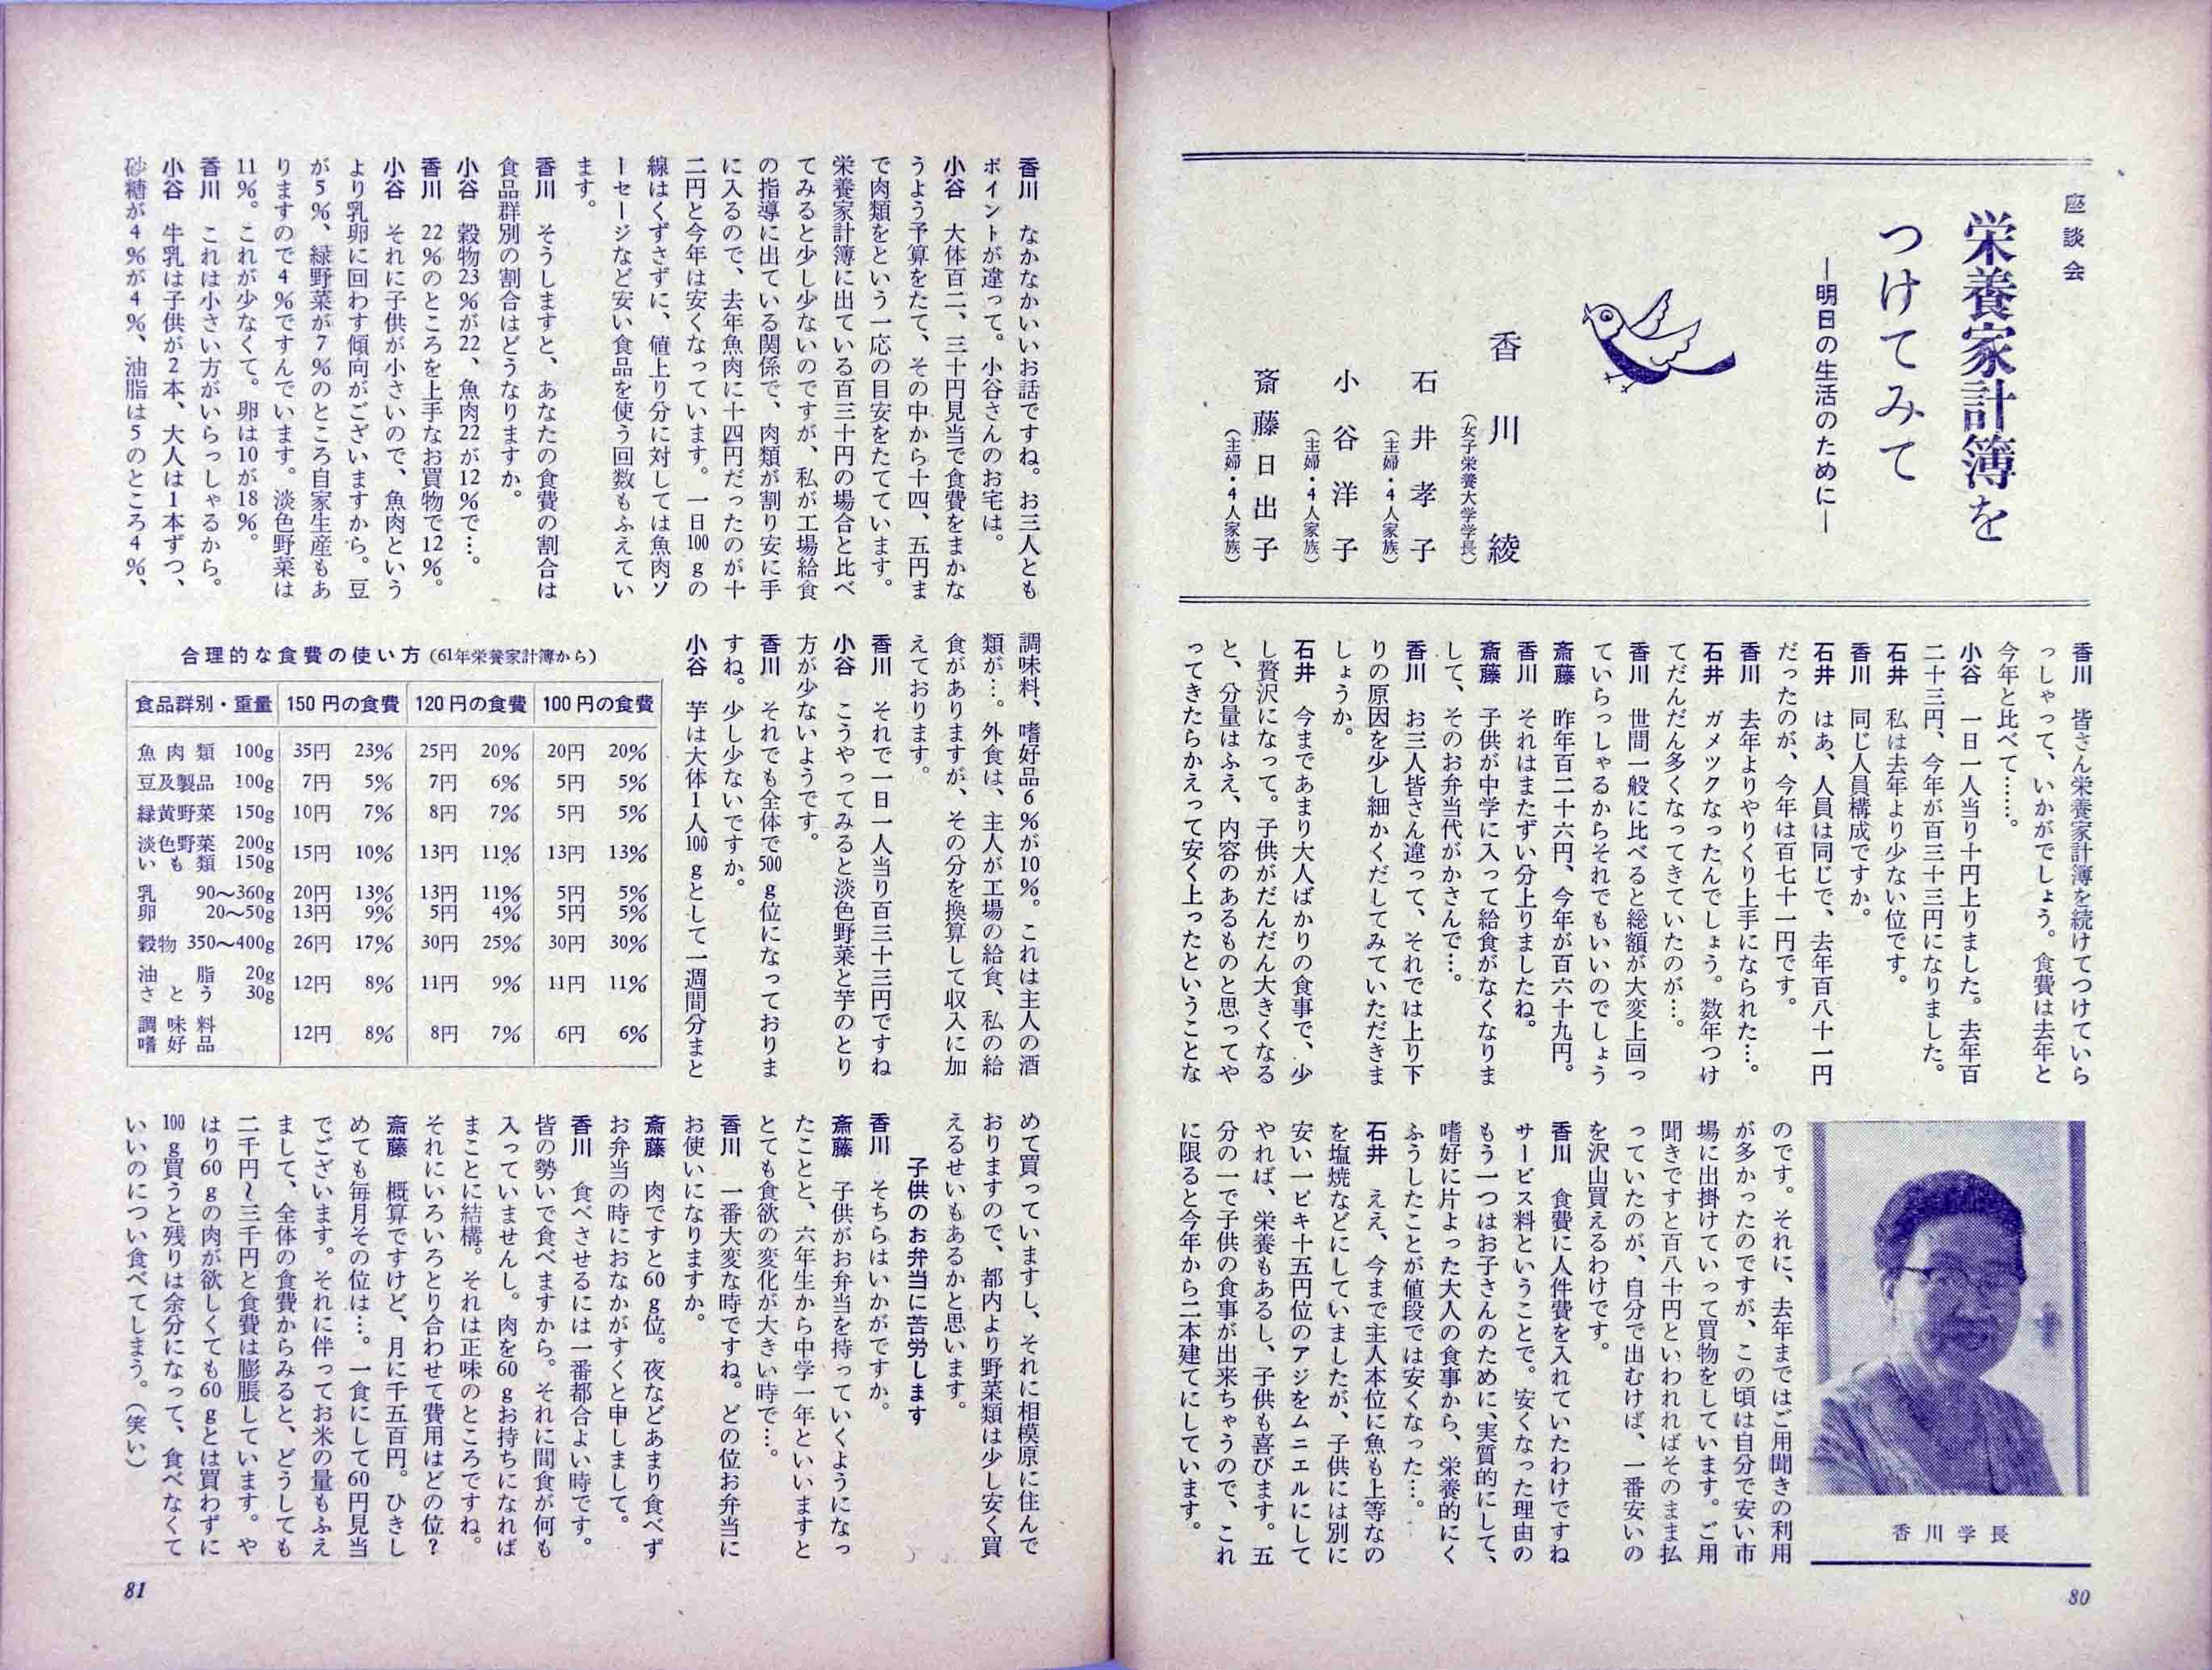 座談会
栄養家計簿を
つけてみて
―明日の生活のために―
香川綾
(女子栄養大学学長)
石井孝子
(主婦・4人家族)
小谷洋子
(主婦・4人家族)
斎藤日出子
(主婦・4人家族)
香川　皆さん栄養家計簿を続けてつけていら
っしゃって、いかがでしょう。食費は去年と
今年と比べて……。
小谷　一日一人当り十円上りました。去年百
二十三円、今年が百三十三円になりました。
石井　私は去年より少ない位です。
香川　同じ人員構成ですか。
石井　はあ、人員は同じで、去年百八十一円
だったのが、今年は百七十一円です。
香川　去年よりやりくり上手になられた…。
石井　ガメックなったんでしょう。数年つけ
てだんだん多くなってきていたのが…。
香川　世間一般に比べると総額が大変上回っ
ていらっしゃるからそれでもいいのでしょう
斎藤　昨年百二十六円、今年が百六十九円。
香川　それはまたずい分上りましたね。
斎藤　子供が中学に入って給食がなくなりま
して、そのお弁当代がかさんで…。
香川　お三人皆さん違って、それでは上り下
りの原因を少し細かくだしてみていただきま
しょうか。
石井　今まであまり大人ばかりの食事で、少
し贅沢になって。子供がだんだん大きくなる
と、分量はふえ、内容のあるものと思ってや
ってきたらかえって安く上ったということな
香川学長
のです。それに、去年まではご用聞きの利用
が多かったのですが、この頃は自分で安い市
場に出掛けていって買物をしています。ご用
聞きですと百八十円といわれればそのまま払
っていたのが、自分で出むけば、一番安いの
を沢山買えるわけです。
香川　食費に人件費を入れていたわけですね
サービス料ということで。安くなった理由の
もう一つはお子さんのために、実質的にして、
嗜好に片よった大人の食事から、栄養的にく
ふうしたことが値段では安くなった…。
石井　ええ、今まで主人本位に魚も上等なの
を塩焼などにしていましたが、子供には別に
安い一ピキ十五円位のアジをムニエルにして
やれば、栄養もあるし、子供も喜びます。五
分の一で子供の食事が出来ちゃうので、これ
に限ると今年から二本建てにしています。
80
香川　なかなかいいお話ですね。お三人とも
ポイントが違って。小谷さんのお宅は。
小谷　大体百二、三十円見当で食費をまかな
うよう予算をたて、その中から十四、五円ま
で肉類をという一応の目安をたてています。
栄養家計簿に出ている百三十円の場合と比べ
てみると少し少ないのですが、私が工場給食
の指導に出ている関係で、肉類が割り安に手
に入るので、去年魚肉に十四円だったのが十
二円と今年は安くなっています。一日100gの
線はくずさずに、値上り分に対しては魚肉ソ
ーセージなど安い食品を使う回数もふえてい
ます。
香川　そうしますと、あなたの食費の割合は
食品群別の割合はどうなりますか。
小谷　穀物23%が22、魚肉22が12%で…。
香川　22%のところを上手なお買物で12%。
小谷　それに子供が小さいので、魚肉という
より乳卵に回わす傾向がございますから。豆
が5%、緑野菜が7%のところ自家生産もあ
りますので4%ですんでいます。淡色野菜は
11%。これが少なくて。卵は10が18%。
香川　これは小さい方がいらっしゃるから。
小谷　牛乳は子供が2本、大人は1本ずつ、
砂糖が4%が4%、油脂は5のところ4%、
調味料、嗜好品6%が10%。これは主人の酒
類が…。外食は、主人が工場の給食、私の給
食がありますが、その分を換算して収入に加
えております。
香川　それで一日一人当り百三十三円ですね
小谷　こうやってみると淡色野菜と芋のとり
方が少ないようです。
香川　それでも全体で500g位になっておりま
すね。少し少ないですか。
小谷　芋は大体1人100gとして一週間分まと
合理的な食費の使い方(61年栄養家計簿から)
食品群別・重量 150円の食費 120円の食費 100円の食費
魚肉類 100g 35円 23% 25円 20% 20円 20%
豆及製品 100g 7円 5% 7円 6% 5円 5%
緑黄野菜 150g 10円 7% 8円 7% 5円 5%
淡色野菜 200g
いも類 150g 15円 10% 13円 11% 13円 13%
乳 90〜360g 20円 13% 13円 11% 5円 5%
卵 20〜50g 13円 9% 5円 4% 5円 5%
穀物 350〜400g 26円 17% 30円 25% 30円 30%
油脂 20g
さとう 30g 12円 8% 11円 9% 11円 11%
調味料
嗜好品 12円 8% 8円 7% 6円 6%
めて買っていますし、それに相模原に住んで
おりますので、都内より野菜類は少し安く買
えるせいもあるかと思います。
子供のお弁当に苦労します
香川　そちらはいかがですか。
斎藤　子供がお弁当を持っていくようになっ
たことと、六年生から中学一年といいますと
とても食欲の変化が大きい時で…。
香川　一番大変な時ですね。どの位お弁当に
お使いになりますか。
斎藤　肉ですと60g位。夜などあまり食べず
お弁当の時におなかがすくと申しまして。
香川　食べさせるには一番都合よい時です。
皆の勢いで食べますから。それに間食が何も
入っていませんし。肉を60gお持ちになれば
まことに結構。それは正味のところですね。
それにいろいろとり合わせて費用はどの位?
斎藤　概算ですけど、月に千五百円。ひきし
めても毎月その位は…。一食にして60円見当
でございます。それに伴ってお米の量もふえ
まして、全体の食費からみると、どうしても
二千円〜三千円と食費は膨脹しています。や
はり60gの肉が欲しくても60gとは買わずに
100g買うと残りは余分になって、食べなくて
いいのについ食べてしまう。(笑い)
81